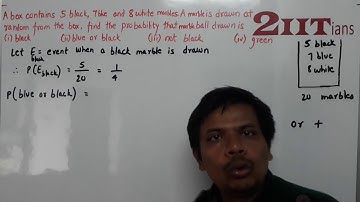 A box contains 5 black, 7 blue and 8 white marbles. A marble is drawn at
random from the box, find the probability that marble ball drawn is
(i) black (ii) blue or black (iii) not black (iv) green
2IITians
Let E black = event when a black marble is drawn
∴ P(E black) = 5/20 = 1/4
P(blue or black) =
5 black
7 blue
8 white
20 marbles
or +